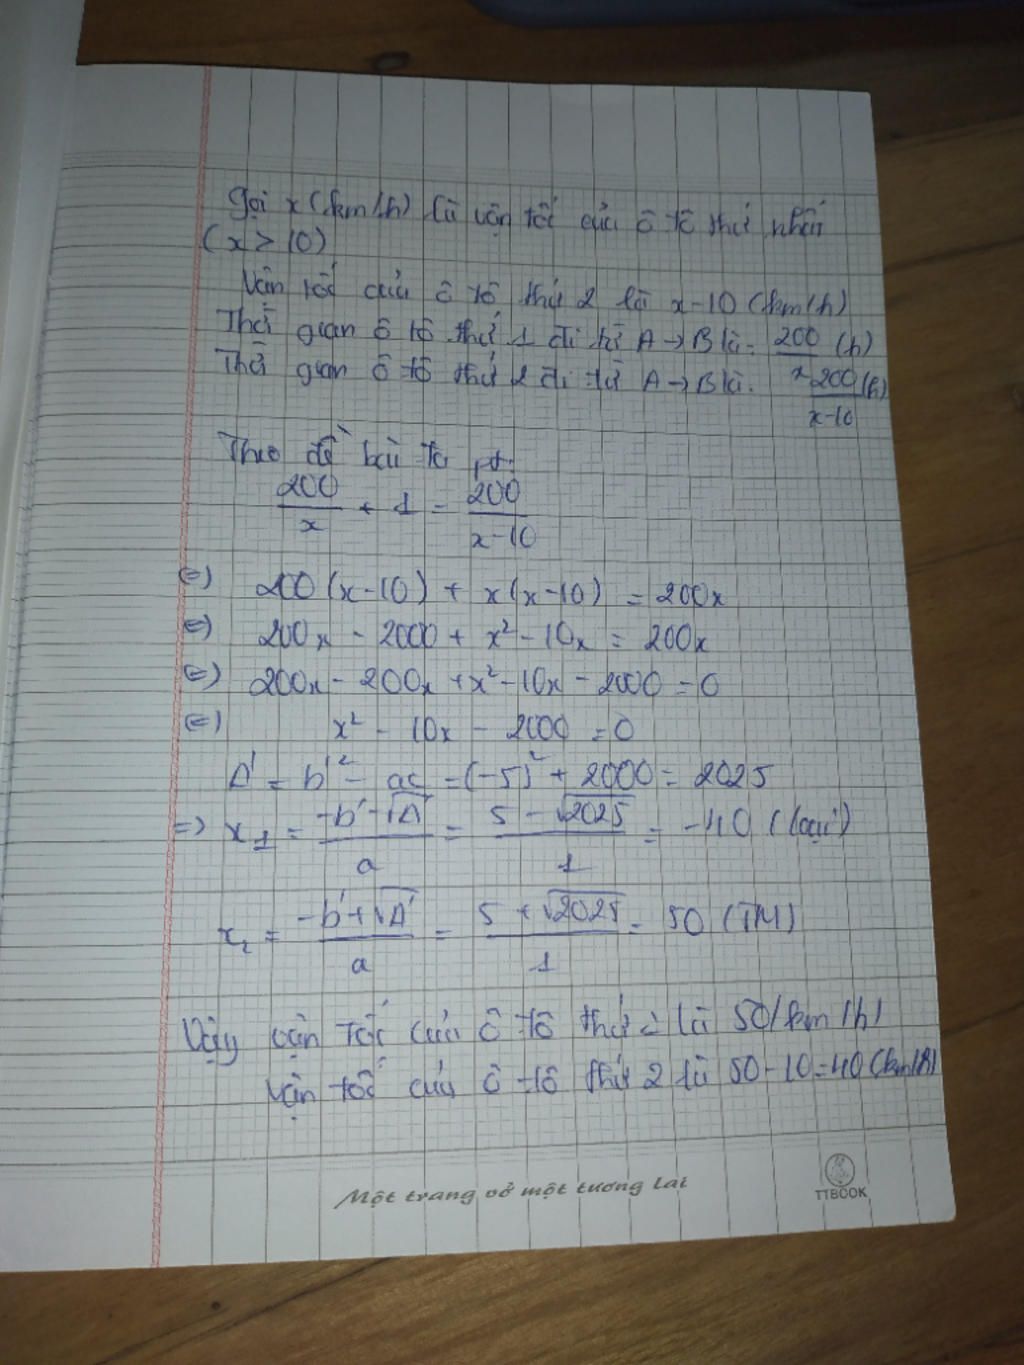 Gọi x (km/h) là vận tốc của ô tô thứ nhất
(x > 10)
Vận tốc của ô tô thứ 2 là x-10 (km/h)
Thời gian ô tô thứ 1 đi từ A → B là: 200/x (h)
Thời gian ô tô thứ 2 đi từ A → B là: 200/(x-10) (h)
Theo đề bài ta pt:
200/x + 1 = 200/(x-10)
(=) 200(x-10) + x(x-10) = 200x
(=) 200x - 2000 + x² - 10x = 200x
(=) 200x - 200x + x² - 10x - 2000 = 0
(=) x² - 10x - 2000 = 0
Δ' = b'² - ac = (-5)² + 2000 = 2025
=> x₁ = (-b' - √Δ')/a = (5 - √2025)/1 = -40 (loại)
x₂ = (-b' + √Δ')/a = (5 + √2025)/1 = 50 (TM)
Vậy vận tốc của ô tô thứ là 50 (km/h)
vận tốc của ô tô thứ 2 là 50-10=40 (km/h)
Một trang vở một tương lai
TTBOOK